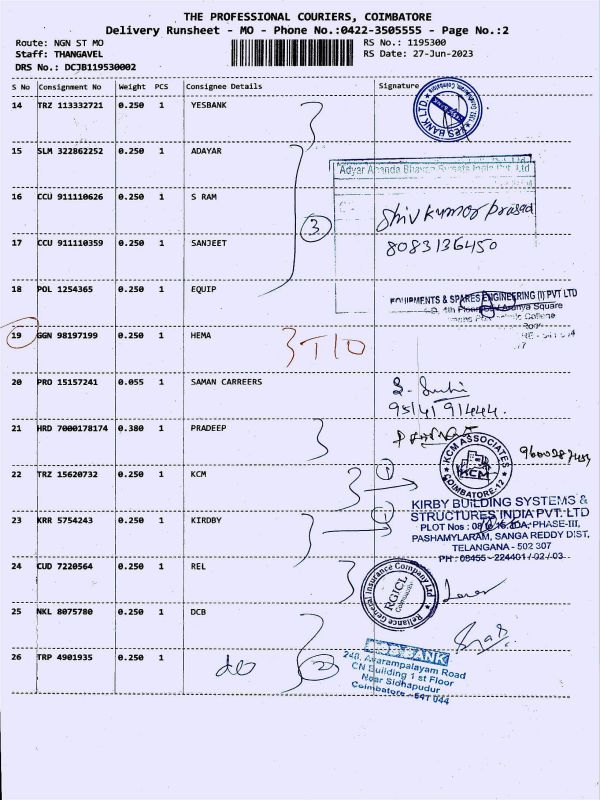 THE PROFESSIONAL COURIERS, COIMBATORE
Delivery Runsheet - MO - Phone No.:0422-3505555 - Page No.:2
Route: NGN ST MO
RS No.: 1195300
Staff: THANGAVEL
RS Date: 27-Jun-2023
DRS No.: DCJB119530002
S No Consignment No Weight PCS Consignee Details Signature
14 TRZ 113332721 0.250 1 YESBANK
YES BANK LTD.
15 SLM 322862252 0.250 1 ADAYAR
Adyar Ananda Bhavan Sweets India Pvt. Ltd
16 CCU 911110626 0.250 1 S RAM
Shiv kumar prasad
3
17 CCU 911110359 0.250 1 SANJEET
8083136450
18 POL 1254365 0.250 1 EQUIP
EQUIPMENTS & SPARES ENGINEERING (I) PVT LTD
19 GGN 98197199 0.250 1 HEMA
20 PRO 15157241 0.055 1 SAMAN CARREERS
21 HRD 7000178174 0.380 1 PRADEEP
KCM ASSOCIATES
KCM
COIMBATORE-12
22 TRZ 15620732 0.250 1 KCM
1
KIRBY BUILDING SYSTEMS &
STRUCTURES INDIA PVT. LTD
23 KRR 5754243 0.250 1 KIRDBY
1
PHASE-III,
PASHAMYLARAM, SANGA REDDY DIST,
TELANGANA - 502 307
PH : 08455 - 224401 / 02 / 03
24 CUD 7220564 0.250 1 REL
Reliance General Insurance Company Ltd
RGICL
25 NKL 8075780 0.250 1 DCB
26 TRP 4901935 0.250 1
do
2
248, Avarampalayam Road
CN Building 1 st Floor
Near Sidhapudur
Coimbatore - 641 044